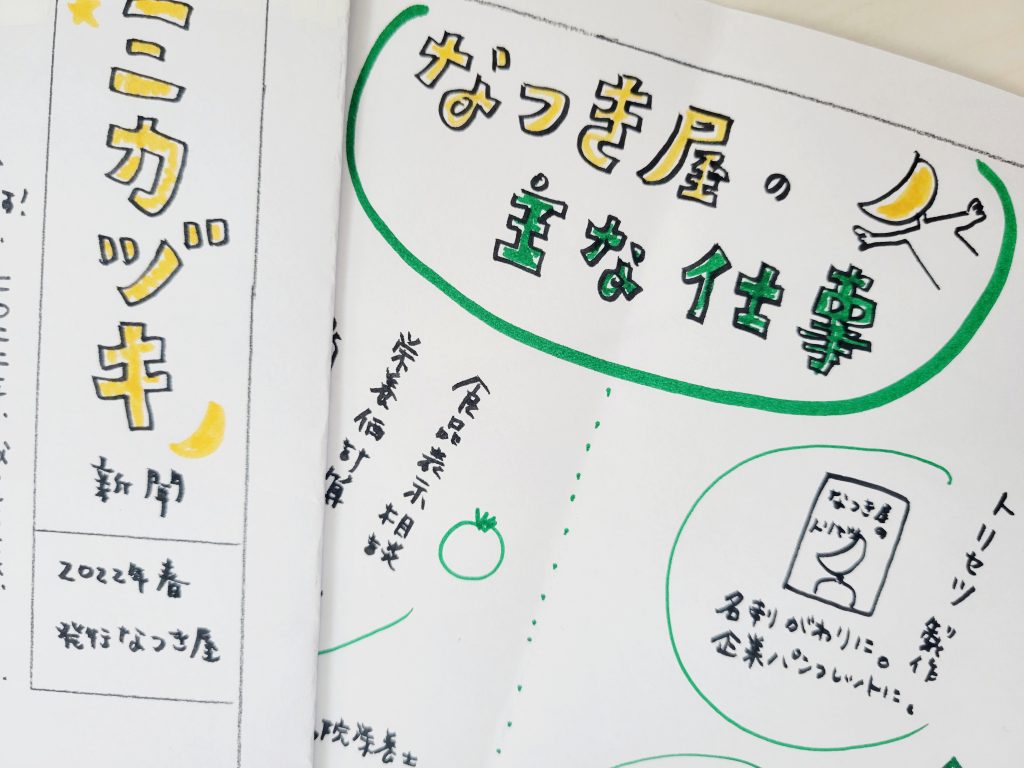 ミカヅキ
新聞
2022年春
発行なつき屋
なつき屋の
主な仕事
食品表示相談
栄養価計算
トリセツ製作
なつき屋の
トリセツ
名刺がわりに。
企業パンフレットに。